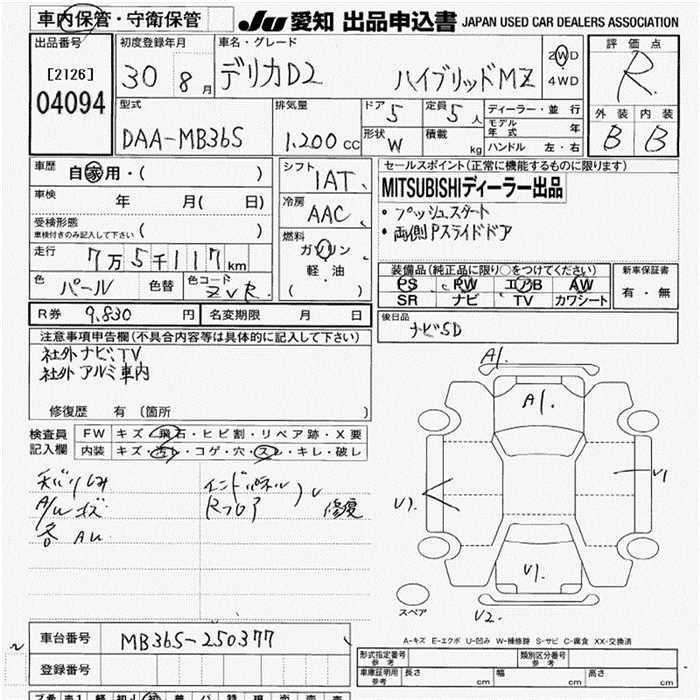 車内保管・守衛保管
JU 愛知 出品申込書 JAPAN USED CAR DEALERS ASSOCIATION
出品番号 初度登録年月 車名・グレード 評価点
[2126] 30年 8月 デリカD2 ハイブリッドMZ 2WD R
04094 4WD
型式 排気量 ドア 5 定員 5人 ディーラー・並行 外装 内装
DAA-MB36S 1,200cc 形状 W 積載 kg モデル年式 年 B B
ハンドル 左・右
車歴 自家用・( ) シフト 1AT セールスポイント(正常に機能するものに限ります)
車検 年 月( 日) 冷房 AAC MITSUBISHIディーラー出品
受検形態 ・プッシュスタート
車検付きのみ記入して下さい ( ) 燃料 ・両側Pスライドドア
走行 7万5千117km ガソリン
軽・油
( )
色 パール 色替 色コード ZVR 装備品(純正品に限り○をつけてください) 新車保証書
PS PW エアB AW 有・無
SR ナビ TV カワシート
R券 9,830円 名変期限 月 日 後日品
ナビSD
注意事項申告欄(不具合内容等は具体的に記入して下さい)
社外ナビ、TV
社外アルミ 車内
修復歴 有 (箇所 )
A1.
A1.
検査員 FW キズ・飛石・ヒビ割・リペア跡・X要
記入欄 内装 キズ・汚レ・コゲ・穴・スレ・キレ・破レ
インドパネル
Rフロア 修復
A/W キズ
各 AU
U1
U1.
スペア
U2.
A-キズ E-エクボ U-凹み W-補修跡 S-サビ C-腐食 XX-交換済
車台番号 MB36S-250377
登録番号
形式指定番号 参考 類別区分番号 参考
車庫証明用 参考 長さ cm 幅 cm 高さ cm